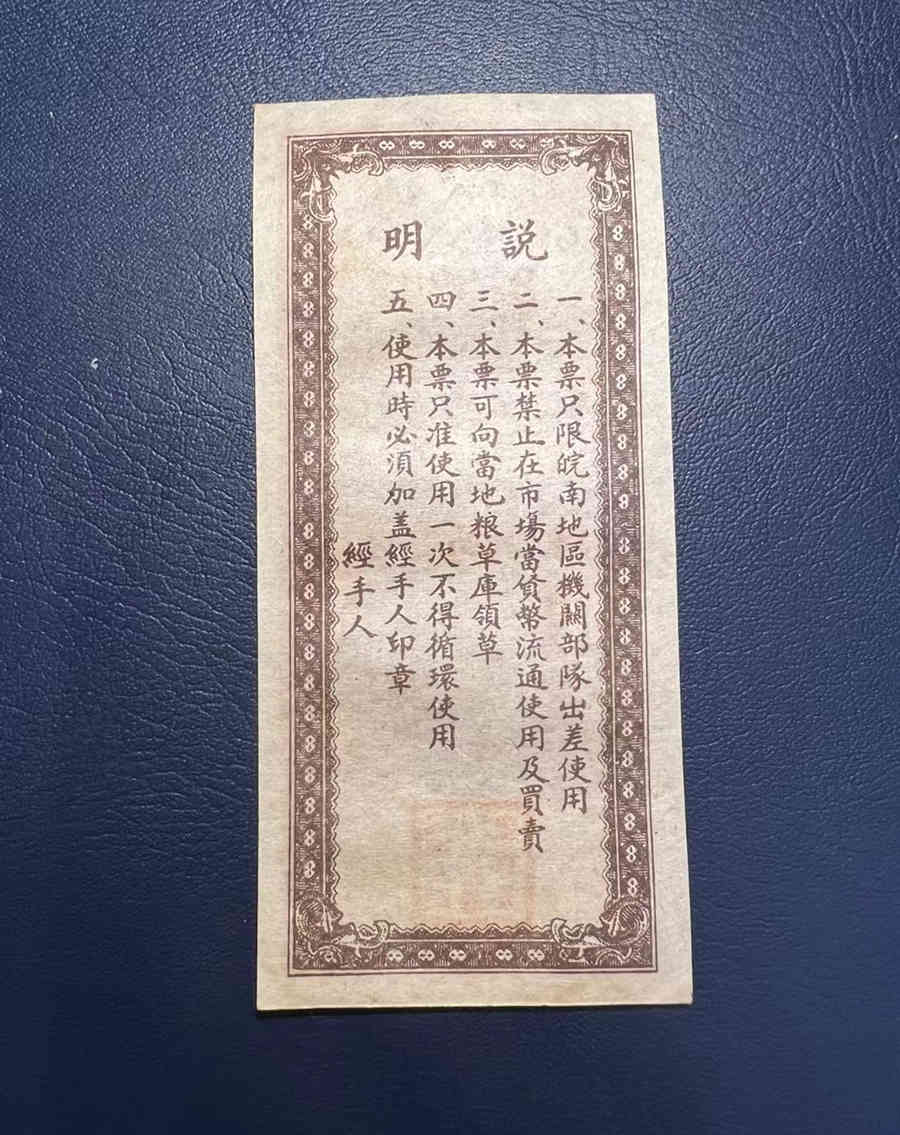 説明
一、本票只限皖南地區機關部隊出差使用
二、本票禁止在市場當貨幣流通使用及買賣
三、本票可向當地粮草庫領草
四、本票只准使用一次不得循環使用
五、使用時必須加盖經手人印章
經手人